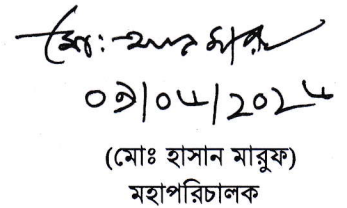 মোঃ হাসান মারুফ
০৭/০৫/২০২৫
(মোঃ হাসান মারুফ)
মহাপরিচালক